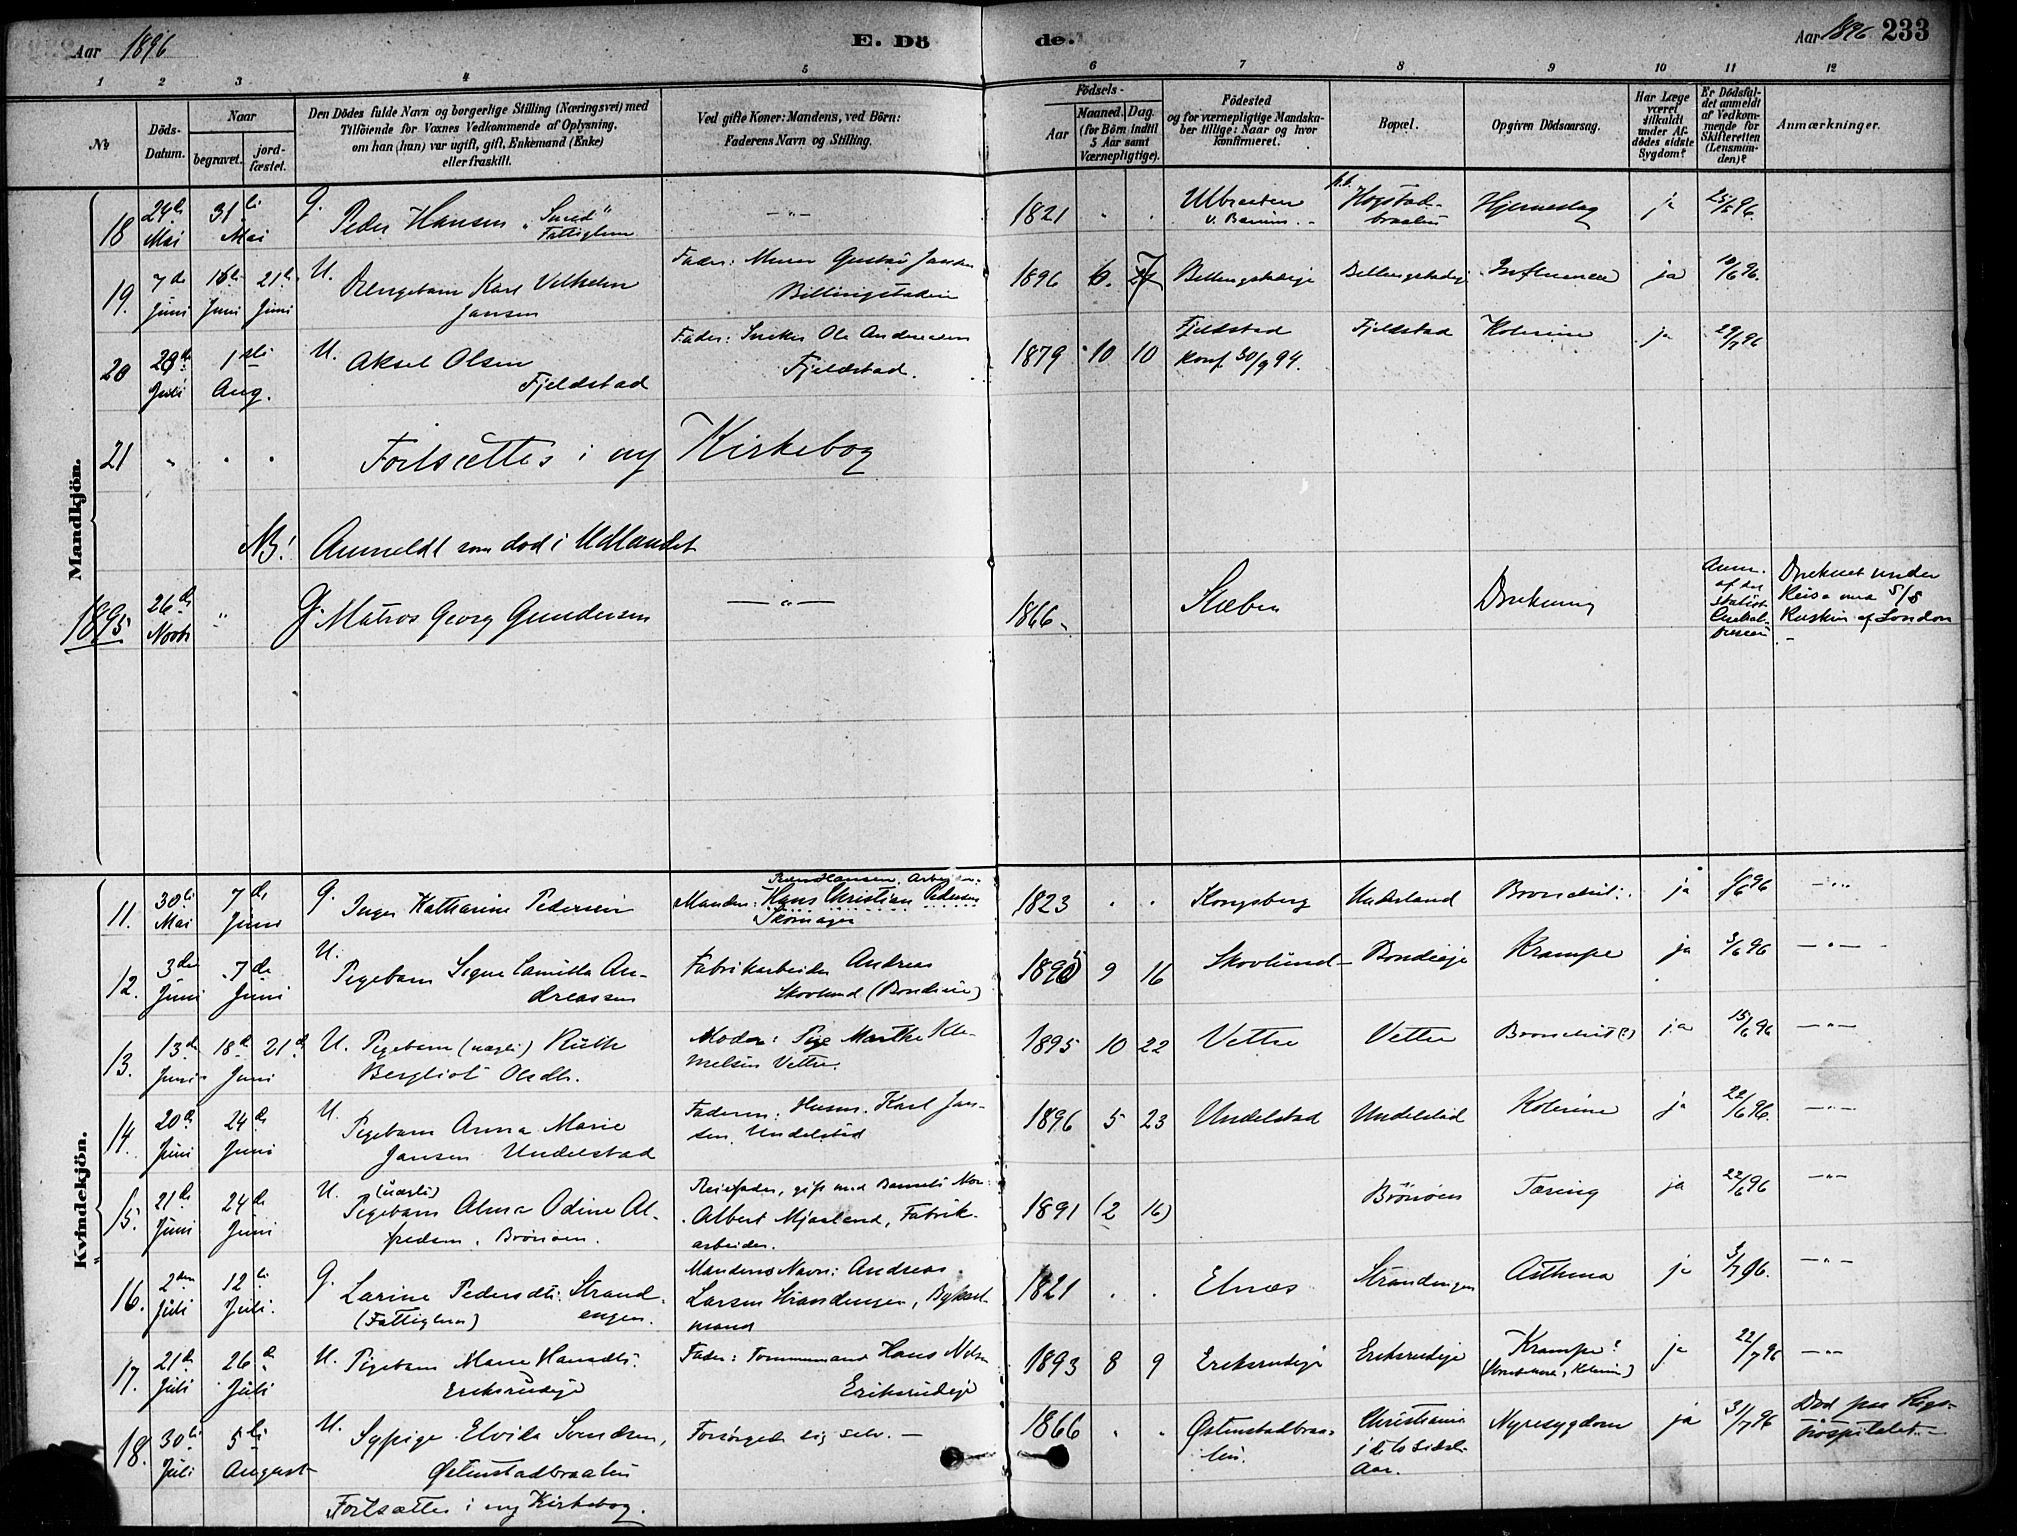 Aar 1896
E. Dö
de.
Aar 1896 233
1 2 3 4 5 6 7 8 9 10 11 12
№
Döds-
Datum.
Naar
begravet.
jord-
fæstet.
Den Dödes fulde Navn og borgerlige Stilling (Næringsvei) med
Tilföiende for Voxnes Vedkommende af Oplysning,
om han (hun) var ugift, gift, Enkemand (Enke)
eller fraskilt.
Ved gifte Koner: Mandens, ved Börn:
Faderens Navn og Stilling.
Födsels-
Aar
Maaned. Dag.
(for Börn indtil
5 Aar samt
Værnepligtige).
Födested
og for værnepligtige Mandska-
ber tillige: Naar og hvor
konfirmeret.
Bopæl.
Opgiven Dödsaarsag.
Har Læge
været
tilkaldt
under Af-
dödes sidste
Sygdom?
Er Dödsfal-
det anmeldt
af Vedkom-
mende for
Skifteretten
(Lensman-
den)?
Anmærkninger.
Mandkjön.
18 24de Mai 31te Mai
G. Peder Hansen "Smed"
Fattiglem
1821
Hjerneslag ja 25/5 96.
19. 7de Juni 16de Juni 21de Juni
U. Drengebarn Karl Vilhelm
Jansen
Fader: Murer Gustav Jansen
1896 6.
Influenza ja 10/6 96.
20 28de Juli 1ste Aug.
U. Aksel Olsen
Fjeldstad
Fader: Snekker Ole Andresen
Fjeldstad.
1879 10 10
Fjeldstad
Konf 30/9 94.
Fjeldstad Kolerine ja 29/7 96
21 Fortsættes i ny Kirkebog
NB! Anmeldt som død i Udlandet
1895 26de Novbr "
G. Matros Georg Gundersen
— " —
1866
Drukning
Anm.
af det
statist.
Centralbureau
Druknet under
Reise med S/S
Ruskin af London
Kvindekjön.
11. 30te Mai 7de Juni
G. Inger Katharine Pedersen
Manden: Hans Christian Pedersen
Skomager
1823 Kongsberg Underland ja
12. 3die Juni 7de Juni
U. Pigebarn Signe Camilla An-
dreassen
Fabrikarbeider Andreas
Skovlund
1895 9 16
Skovlund Bondieie Krampe ja 3/6 96 — " —
13. 13de Juni 18de Juni 21de
U. Pigebarn (uægte) Ruth
Bergliot Olsdtr.
Moder: Pige Marthe Kle-
metsen Vettre.
1895 10 22
Vettre Vettre Bronchit (?) ja 15/6 96 — " —
14. 20de Juni 24de Juni
U. Pigebarn Anna Marie
Jansen Undelstad
Faderen: Husm. Karl Jan-
sen, Undelstad
1896 5 23
Undelstad Undelstad Kolerine ja 22/6 96. — " —
15. 21de Juni 24de Juni
U. (uægte)
Pigebarn Alma Odine Al-
fredsen, Brönöen.
Albert Mjaaland, Fabrik-
arbeider.
1891 (2 16)
Brönöen Tæring ja 22/6 96 — " —
16. 2den Juli 12te Juli.
G. Larine Pedersdtr. Strand-
engen.
(Fattiglem)
Mandens Navn: Andreas
Larsen Strandengen,
1821
Elnæs Strandengen Asthma ja 3/7 96. — " —
17. 21de Juli 26de Juli
U. Pigebarn Marie Hansdtr.
Eriksrudeje
Fader: Tømmermand Hans Nilsen
Eriksrudeje
1893 8 9
Eriksrudeje Eriksrudeje Krampe? ja 22/7 96 — " —
18. 30te Juli 5te August
U. Sypige Elvida Svendsen,
Østenstadbraaten
Forsörgede sig selv. —
1866
Østenstadbraa-
ten.
Christiania
i de to sidste
Aar.
Nyresygdom ja 31/7 96
Död paa Rigs-
hospitalet. —
Fortsættes i ny Kirkebog.